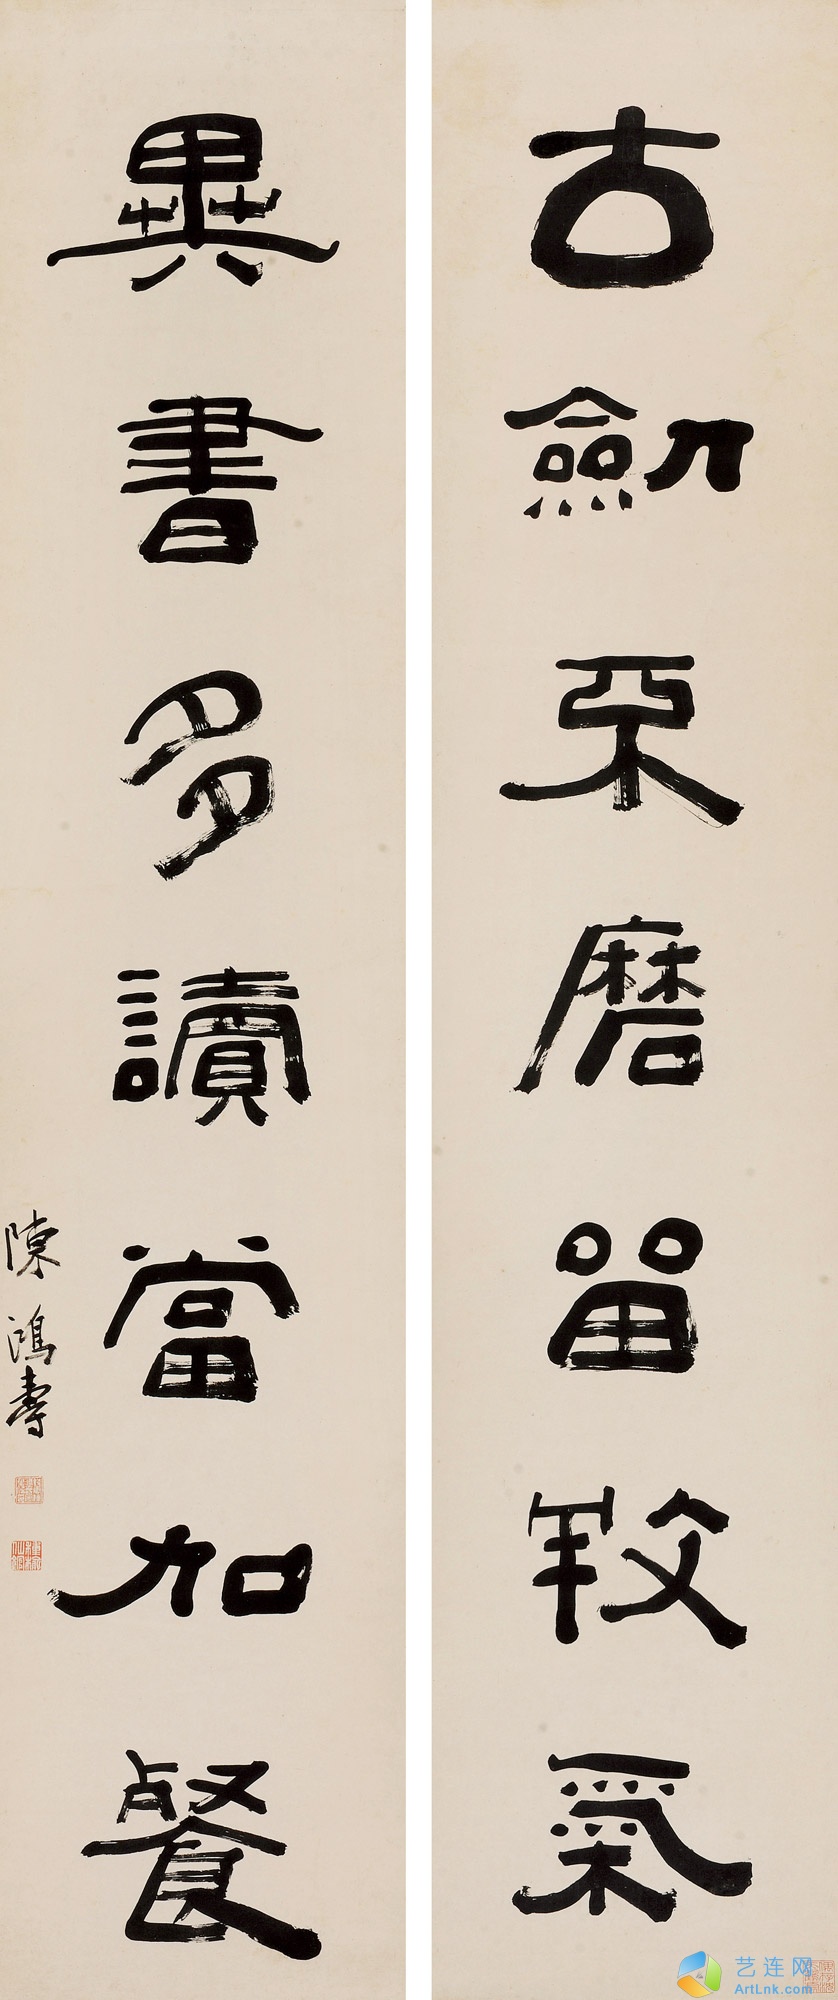 古劍不磨畱殺氣
異書多讀當加餐
陳鴻壽
艺连网
ArtLnk.com